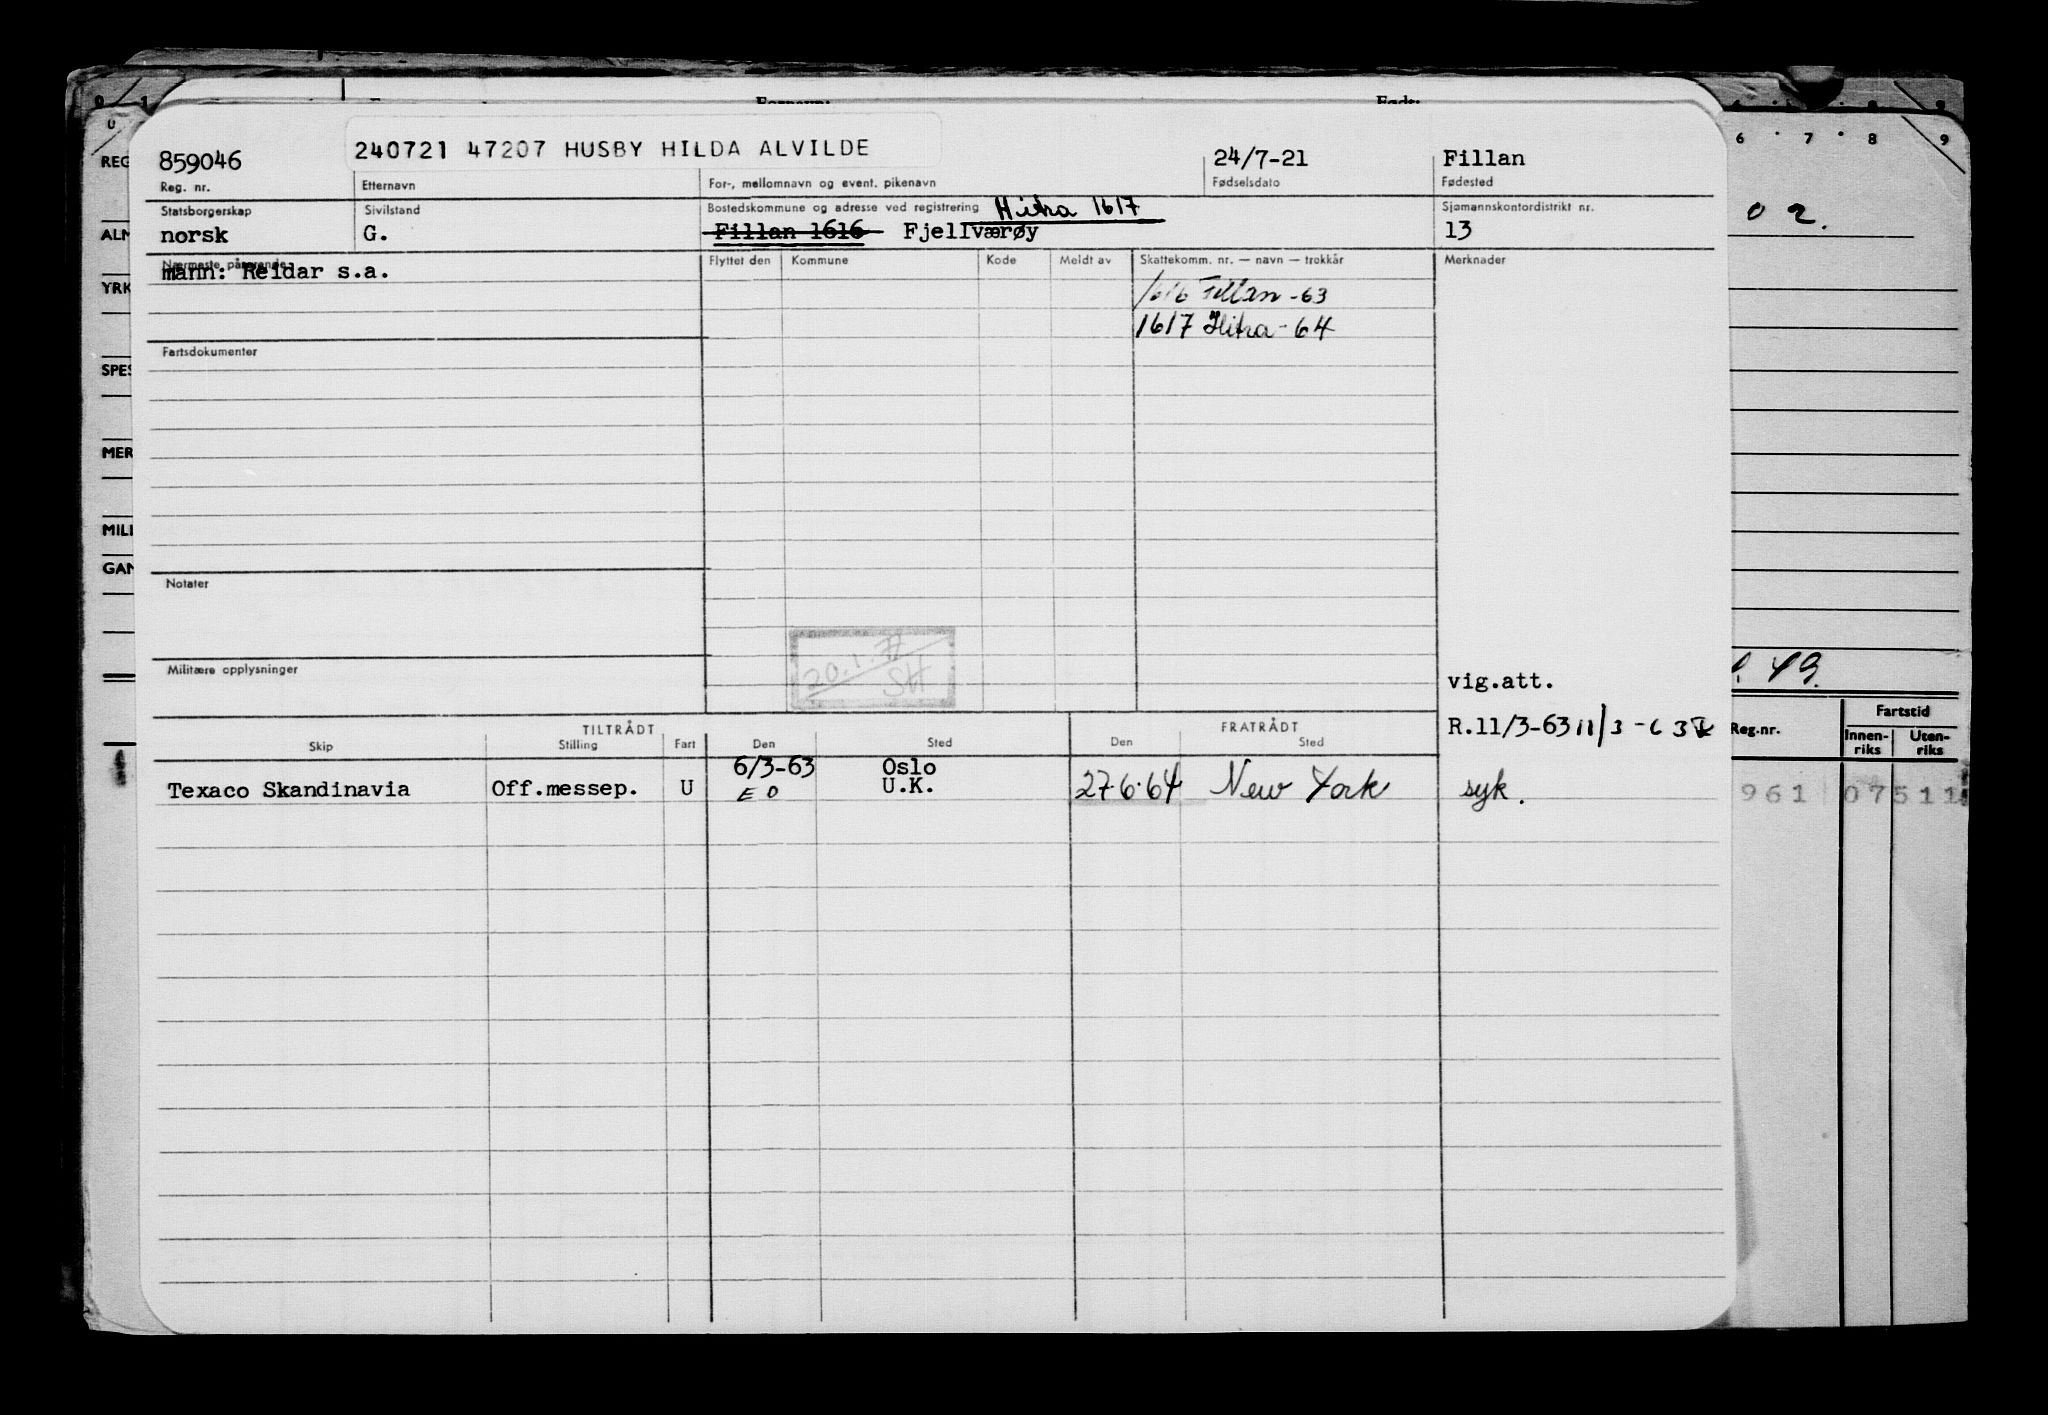 0 1 Fornavn: Født: 8 9
U 6 7 8 9
240721 47207 HUSBY HILDA ALVILDE
REG 859046 24/7-21 Fillan
Reg. nr. Etternavn For-, mellomnavn og event. pikenavn Fødselsdato Fødested
Statsborgerskap Sivilstand Bostedskommune og adresse ved registrering Hitra 1617 Sjømannskontordistrikt nr.
02.
ALM norsk G. Fillan 1616 Fjellværøy 13
Nærmeste pårørende Flyttet den Kommune Kode Meldt av Skattekomm. nr. — navn — trekkår Merknader
mann: Reidar s.a.
YRK 1616 Fillan -63
1617 Hitra - 64
Fartsdokumenter
SPES
MER
MILI
GAN
Notater
20.1.77
SH
Militære opplysninger
49.
vig.att.
TILTRÅDT FRATRÅDT R.11/3-63 11/3-63
Skip Stilling Fart Den Sted Den Sted
Reg.nr. Fartstid
Innen-riks Uten-riks
6/3-63 Oslo
Texaco Skandinavia Off.messep. U EO U.K. 27.6.64 New York syk.
961 07511